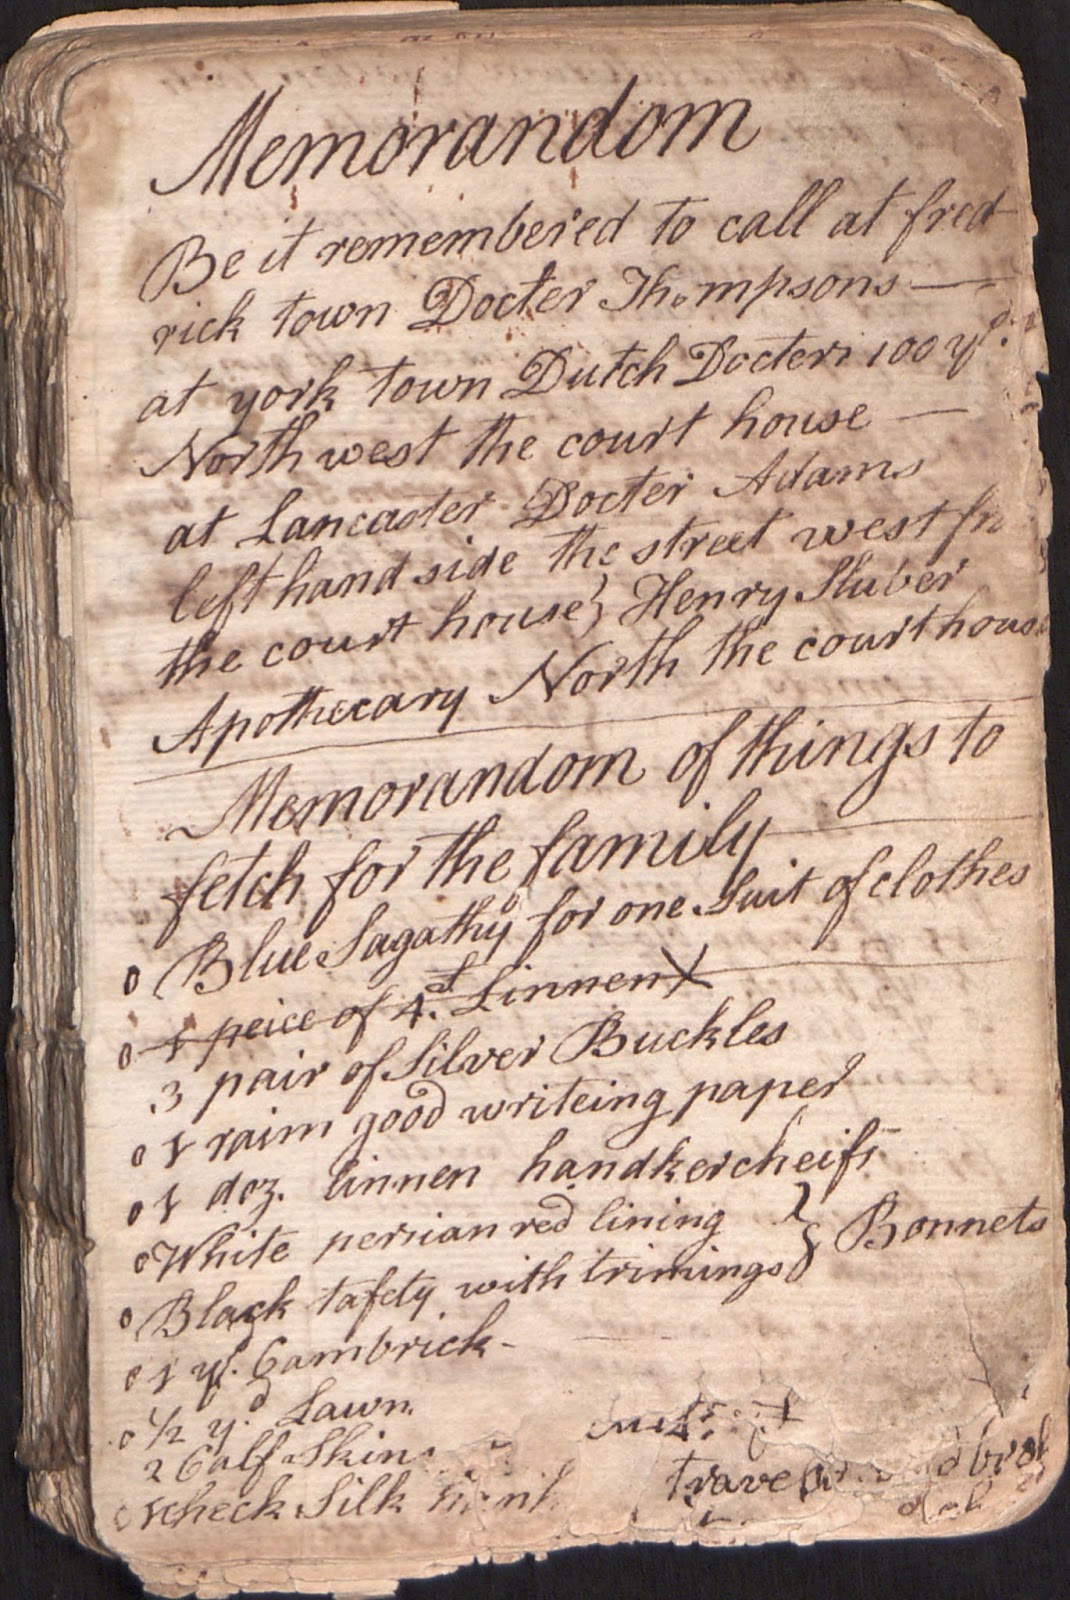 Memorandom
Be it remembered to call at fred
rick town Docter Thompsons —
at york town Dutch Docters 100 yd.
North west the court house —
at Lancaster Docter Adams
left hand side the street west
the court house } Henry Stuber
Apothecary North the courthouse
Memorandom of things to
fetch for the family
o Blue Sagathy for one Suit of clothes
o 1 peice of 4.d Linnen X
3 pair of Silver Buckles
o 1 raim good writeing paper
o 1 doz. linnen handkercheifs
o White persian red lining } Bonnets
o Black tafety with trimings
o 1 yd. Cambrick -
o 1/2 y.d Lawn
2 Calf Skins
o 1 check Silk